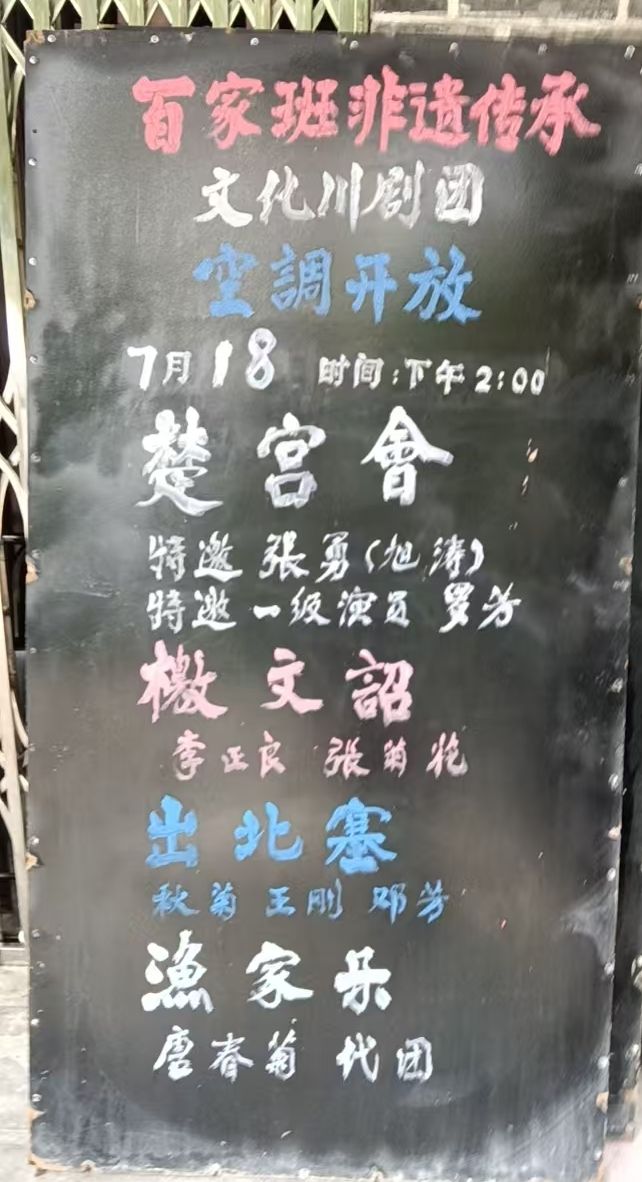 百家班非遗传承
文化川剧团
空調开放
7月18 时间:下午2:00
楚宫會
特邀 張勇(旭涛)
特邀 一级演员 罗芳
檄文詔
李正良 張菊艳
出北塞
秋菊 王刚 邓芳
漁家乐
唐春菊 代团